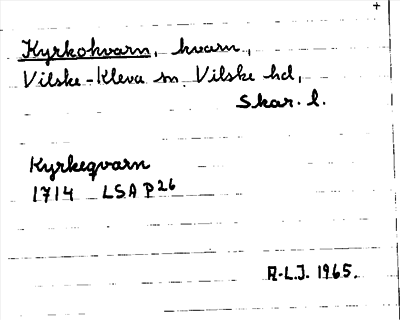 +
Kyrkohvarn, hvarn,
Vilske-Kleva sn. Vilske hd,
Skar. l.
Kyrkeqvarn
1714 LSA P26
R-L.J. 1965.